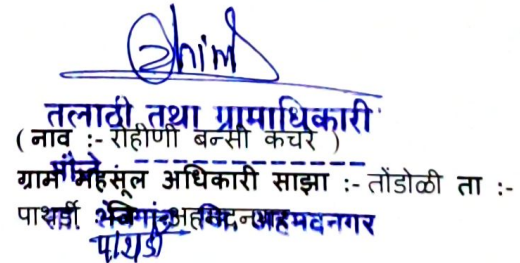 तलाठी तथा ग्रामाधिकारी
( नाव :- रोहीणी बन्सी कचरे )
ग्राम महसूल अधिकारी साझा :- तोंडोळी ता :-
पाथर्डी अहमदनगर
पाथर्डी